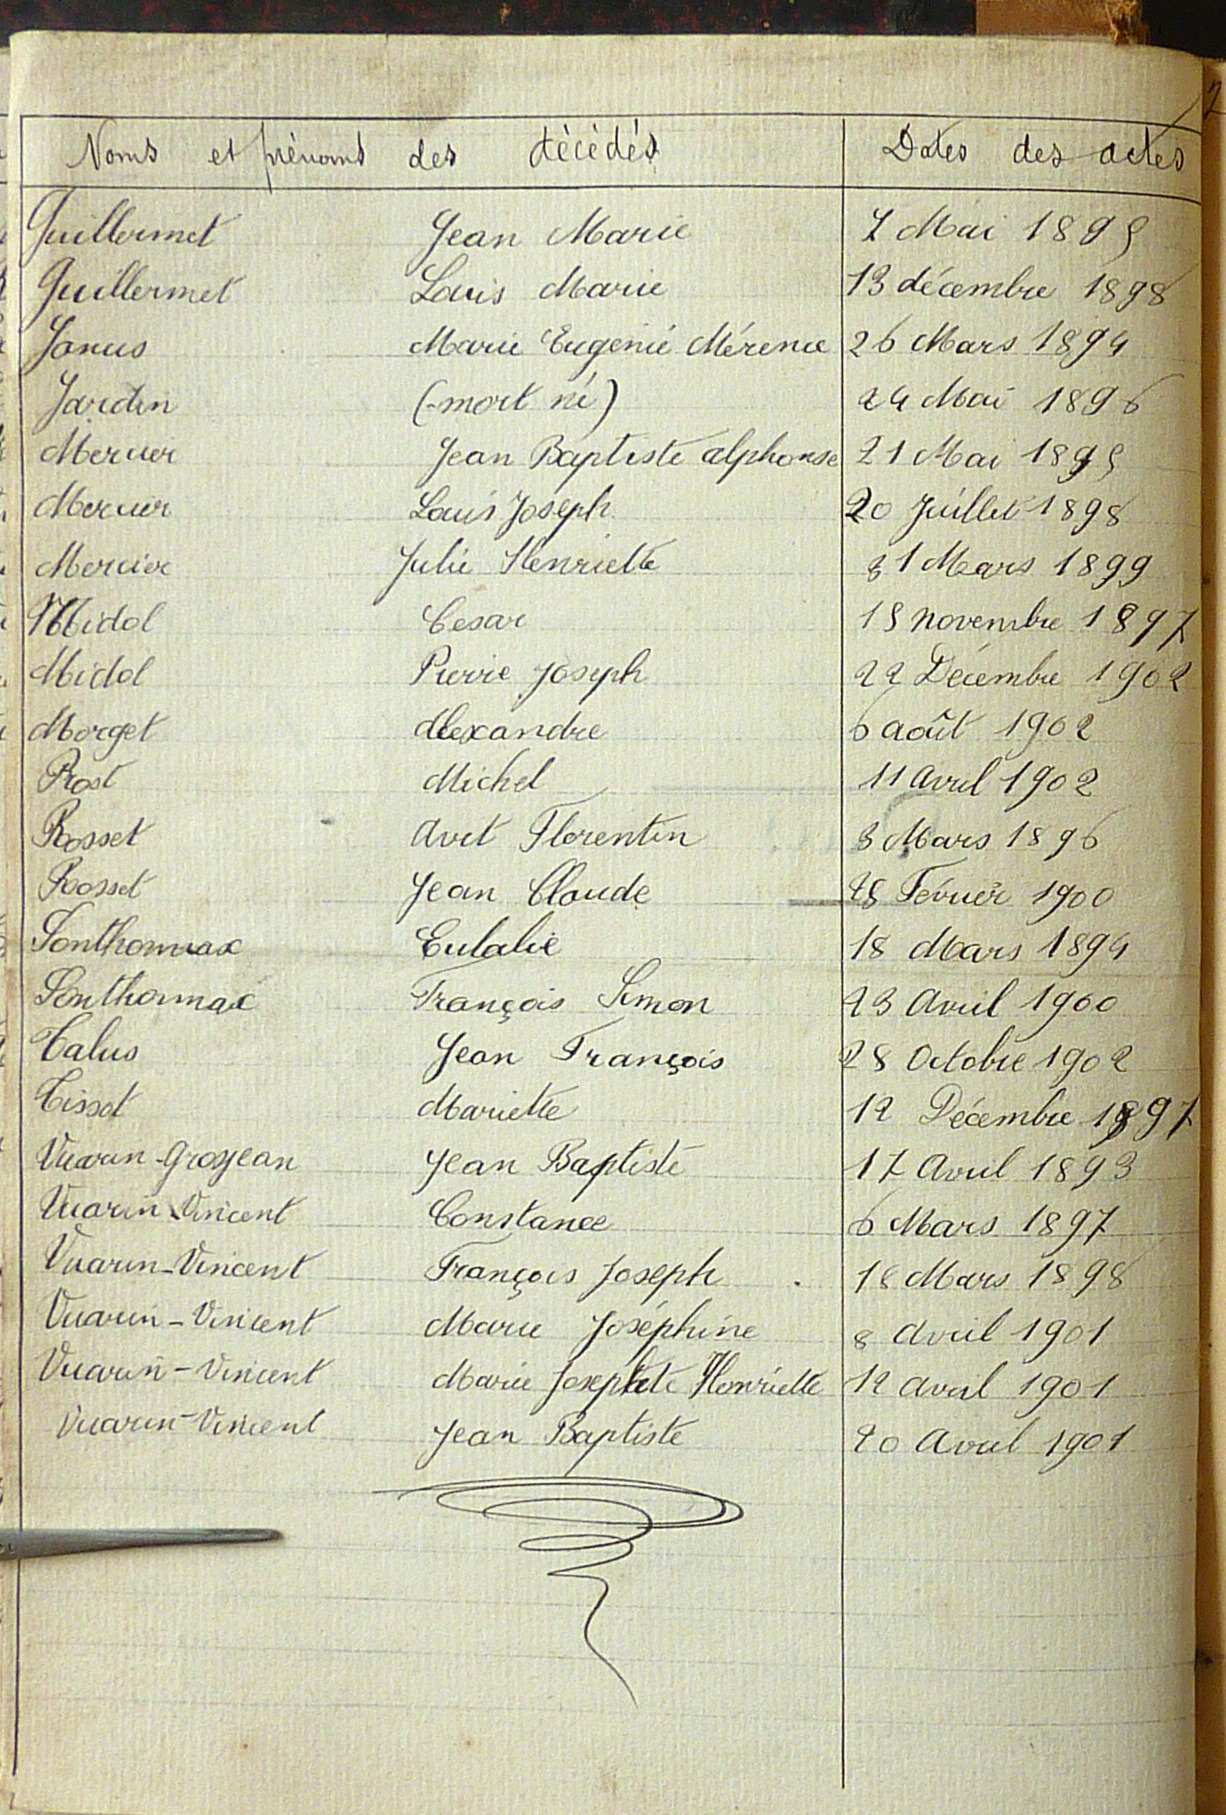 Noms et prénoms des décédés Dates des actes
Guillermet Jean Marie 7 Mai 1895
Guillermet Louis Marie 13 décembre 1898
Janus Marie Eugénie Mérence 26 Mars 1894
Jardin (mort né) 24 Mai 1896
Mercier Jean Baptiste alphonse 21 Mai 1895
Mercier Louis Joseph 20 Juillet 1898
Mercier Julie Henriette 31 Mars 1899
Midol Cesar 15 novembre 1897
Midol Pierre Joseph 22 Décembre 1902
Morget Alexandre 6 août 1902
Prost Michel 11 avril 1902
Rosset Avit Florentin 3 Mars 1896
Rosset Jean Claude Février 1900
Sonthonnax Eulalie 18 Mars 1894
Sonthonnax François Simon 23 Avril 1900
Talus Jean François 28 Octobre 1902
Tissot Mariette 12 Décembre 1897
Vuarin-Grosjean Jean Baptiste 17 Avril 1893
Vuarin-Vincent Constance 6 Mars 1897
Vuarin-Vincent François Joseph 18 Mars 1898
Vuarin-Vincent Marie Joséphine 8 Avril 1901
Vuarin-Vincent Marie Josephte Henriette 12 avril 1901
Vuarin-Vincent Jean Baptiste 20 Avril 1901